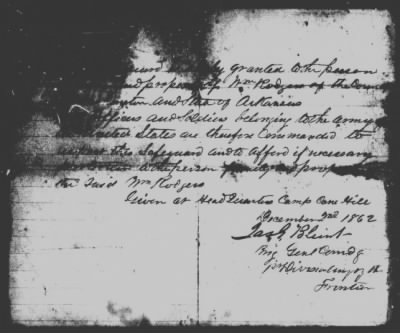 granted to the person
and property of Wm Rodgers of the Coun
and State of Arkansas
Officers and Soldiers belonging to the army
United States are therefore Commanded to
this Safeguard and to afford if necessary
person
the said Wm Rodgers
Given at Head Quarters Camp Cane Hill
December 2nd 1862
Jas G Blunt
Brig Genl Comdg
1st Division Army of the
Frontier